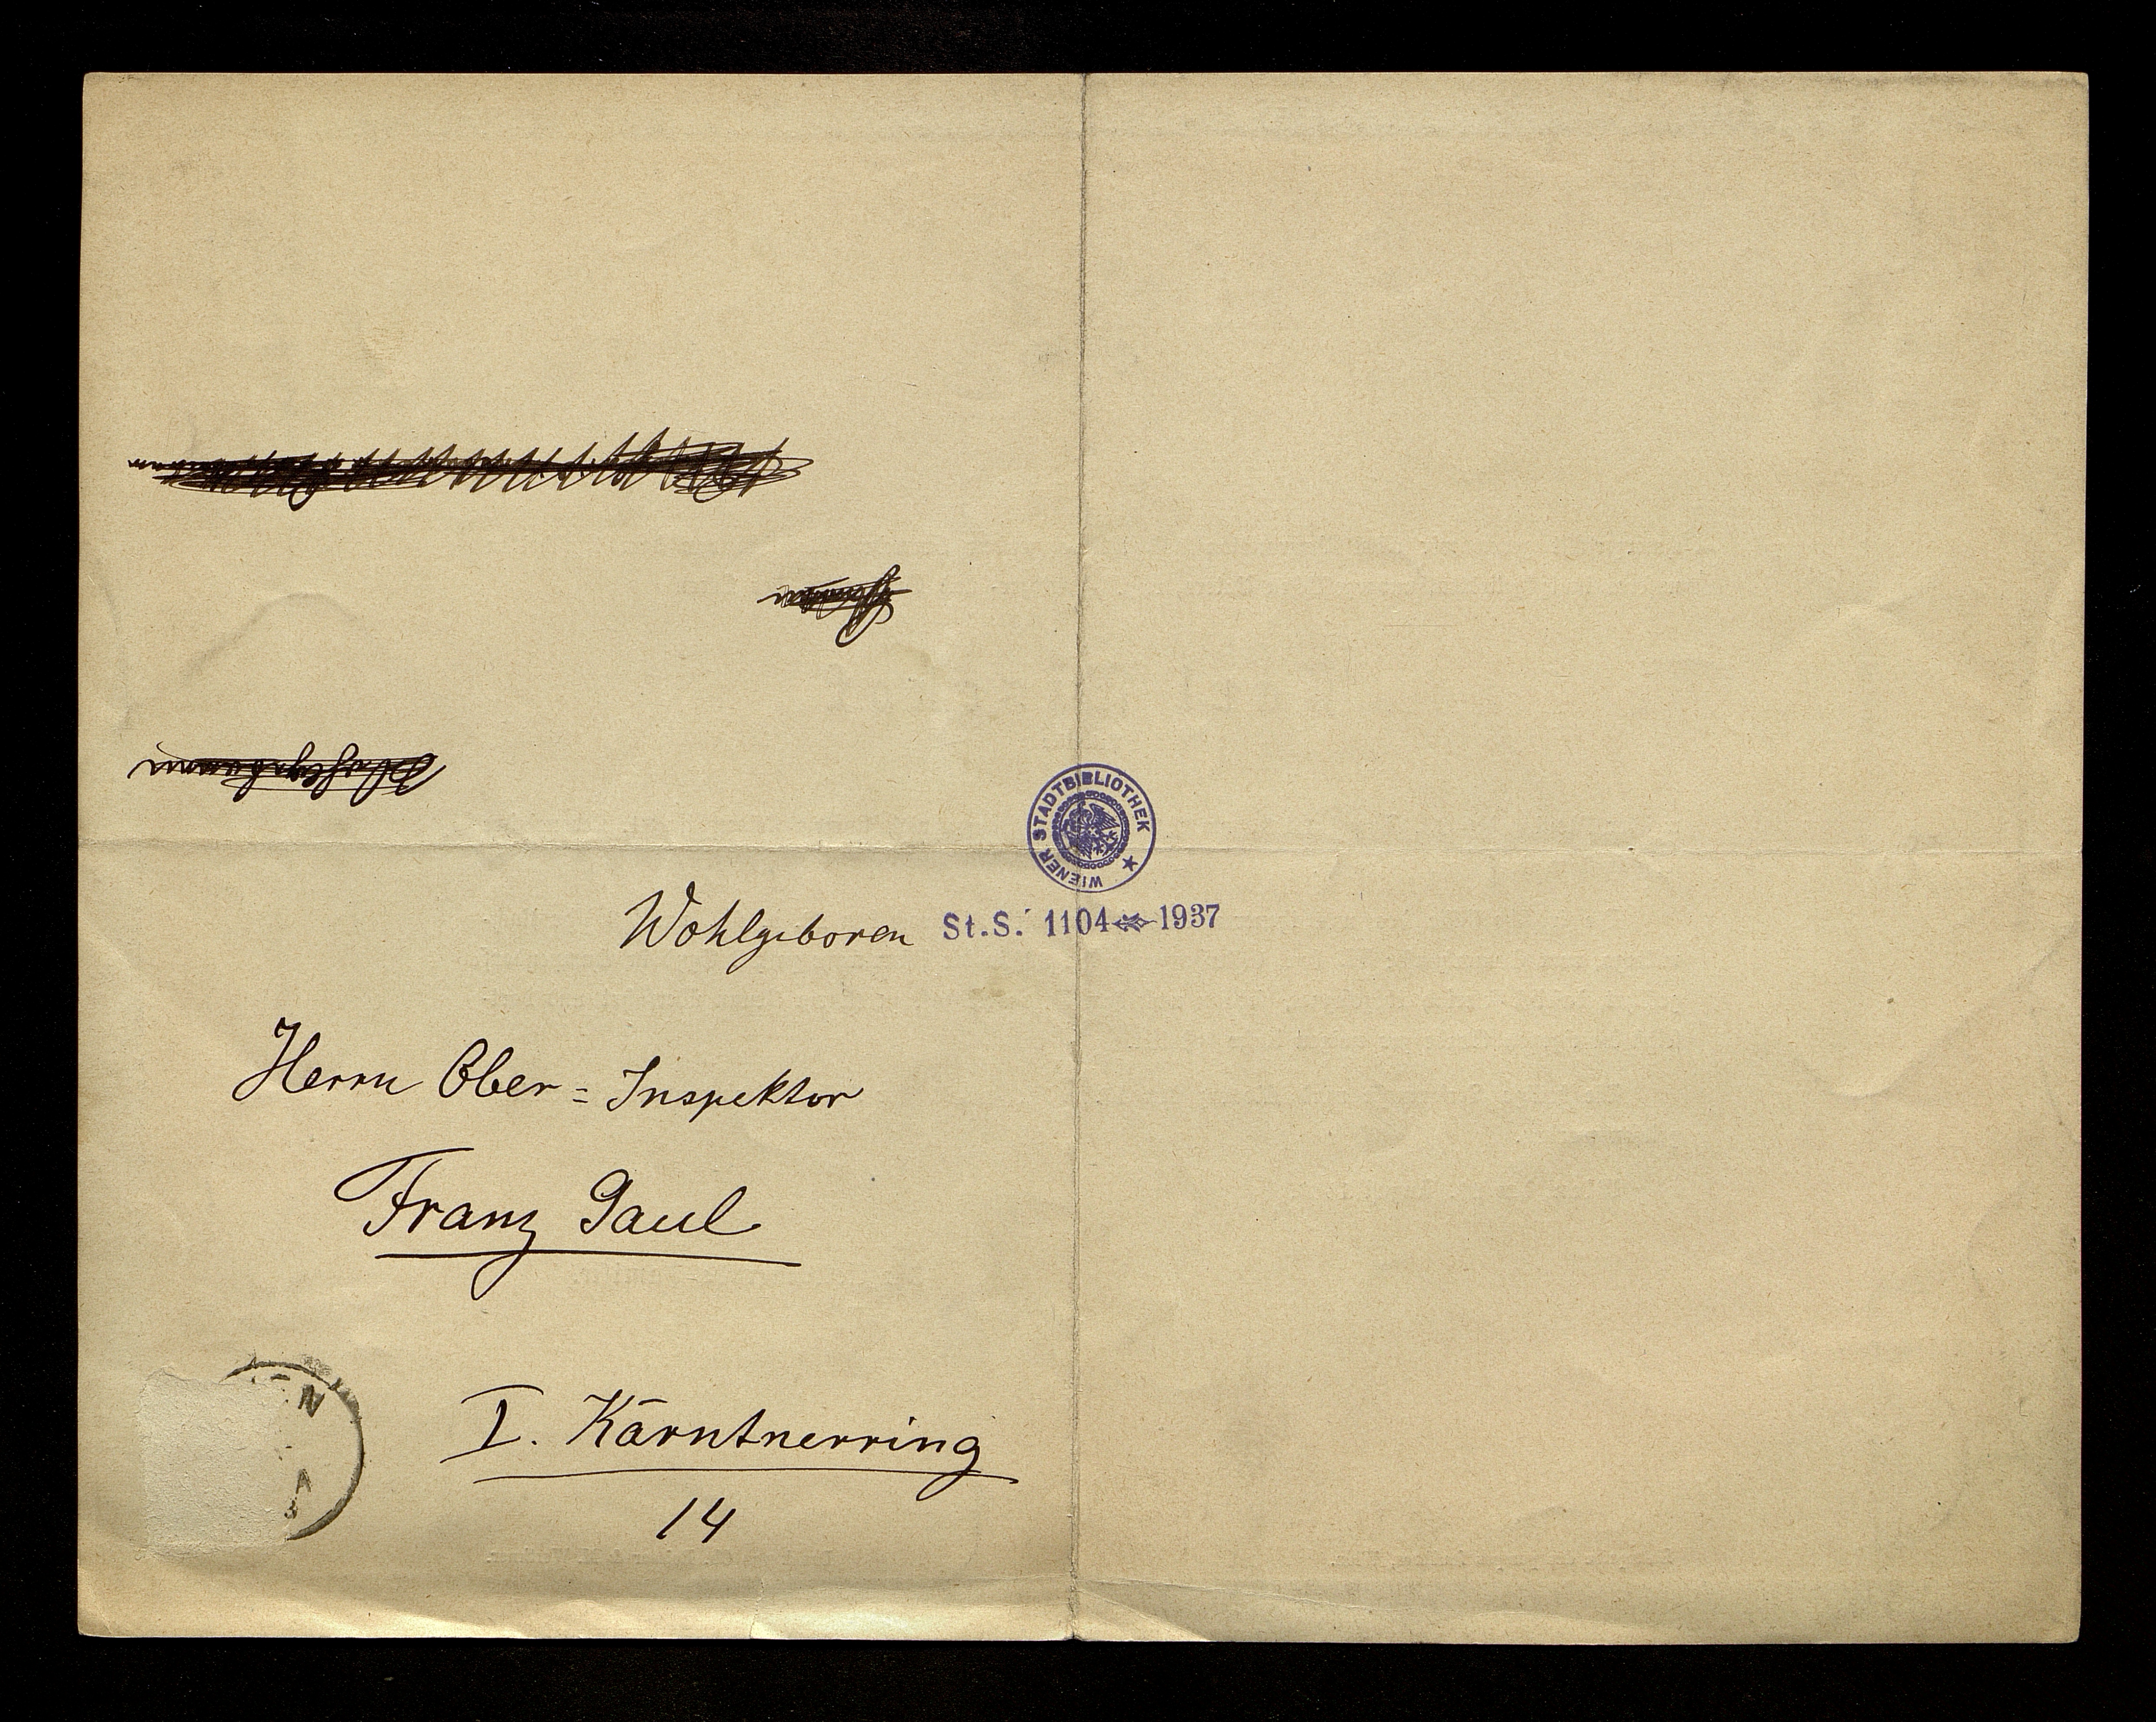 WIENER STADTBIBLIOTHEK
Wohlgeboren St.S. 1104 1937
Herrn Ober=Inspektor
Franz Gaul
I. Kärntnerring
14